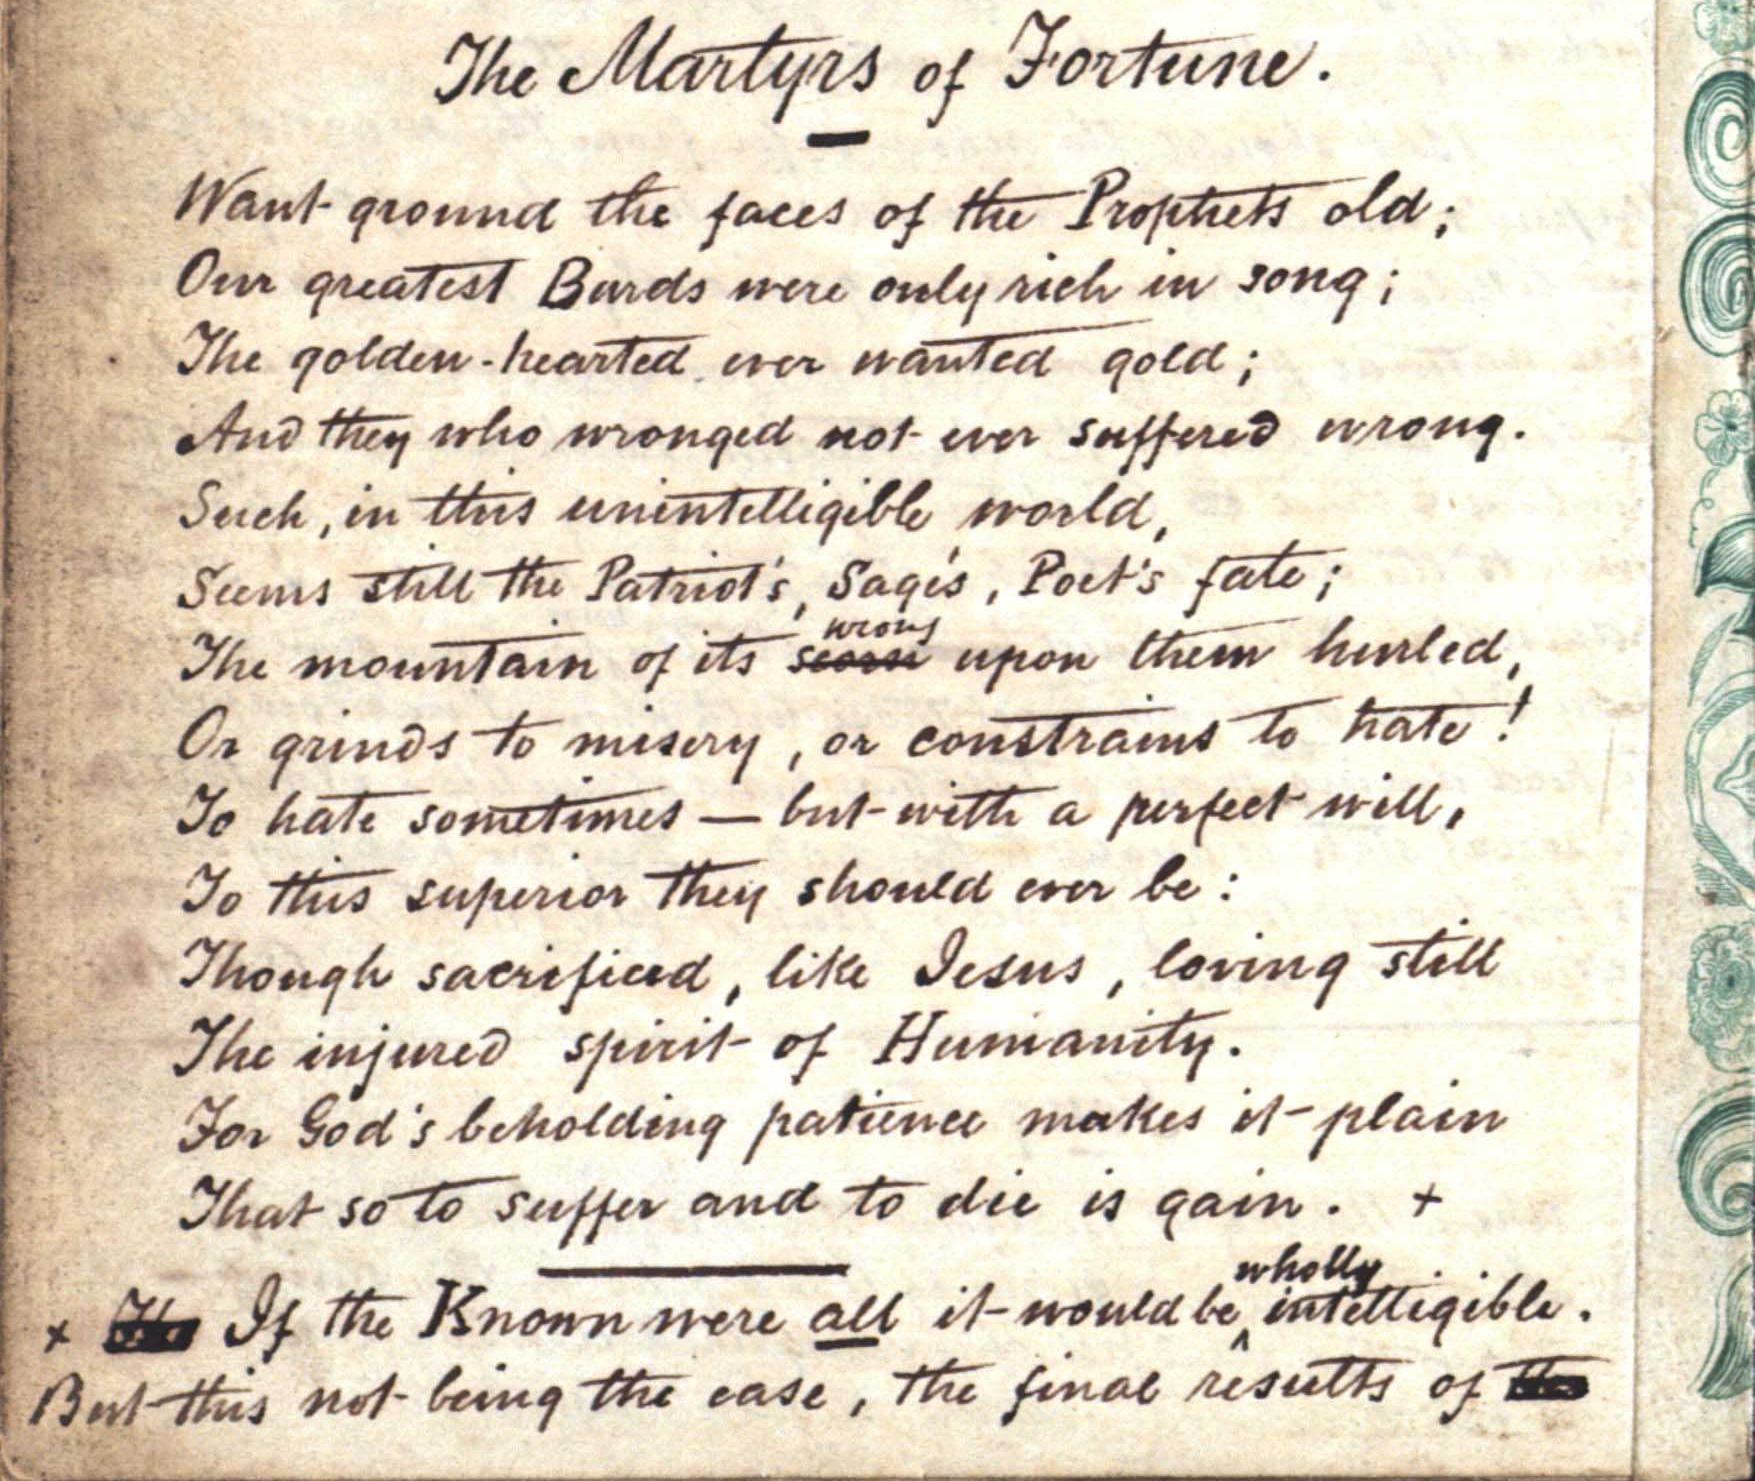 The Martyrs of Fortune.
Want ground the faces of the Prophets old;
Our greatest Bards were only rich in song;
The golden-hearted ever wanted gold;
And they who wronged not ever suffered wrong.
Such, in this unintelligible world,
Seems still the Patriot's, Sage's, Poet's fate;
wrong
The mountain of its scorn upon them hurled,
Or grinds to misery, or constrains to hate!
To hate sometimes — but with a perfect will,
To this superior they should ever be:
Though sacrificed, like Jesus, loving still
The injured spirit of Humanity.
For God's beholding patience makes it plain
That so to suffer and to die is gain. +
wholly
+ The If the Known were all it would be ^ intelligible.
But this not being the case, the final results of the